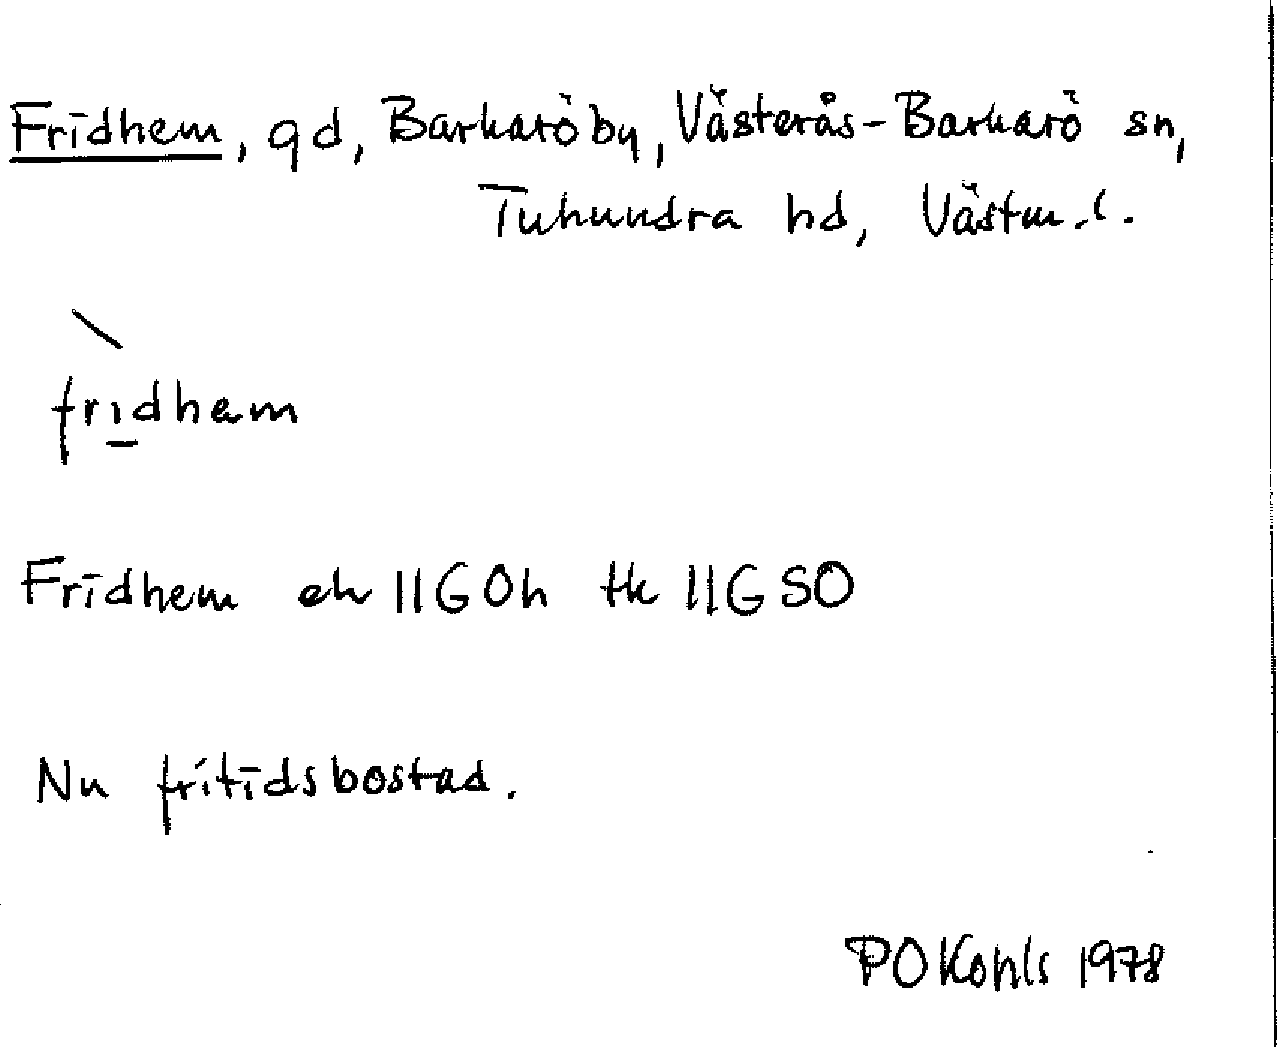 Fridhem, gd, Barkarö by, Västerås-Barkarö sn,
Tuhundra hd, Västm.l.
\
fri̲dhem
Fridhem ek 11G 0h tk 11G SO
Nu fritidsbostad.
PO Kohls 1978